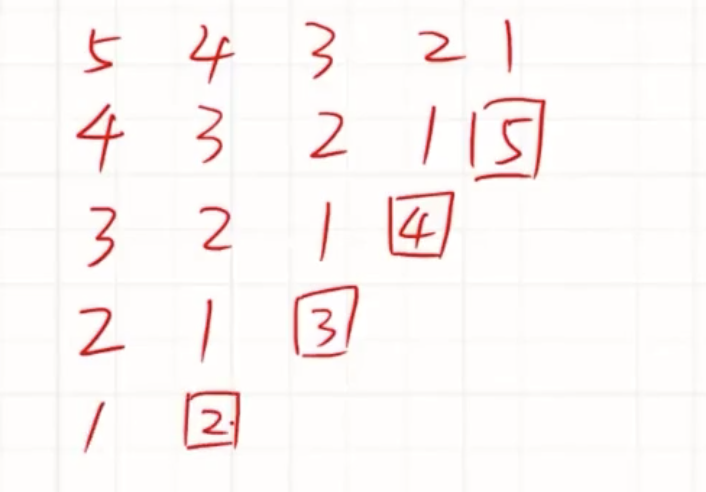 5 4 3 2 1
4 3 2 1 5
3 2 1 4
2 1 3
1 2